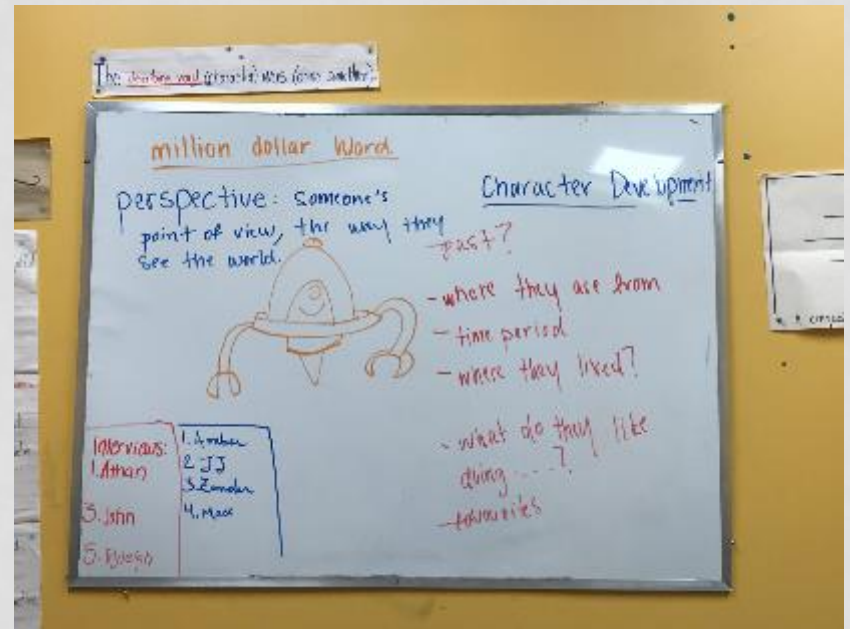 The describing word (character) was (or as another).
million dollar Word.
perspective: someone's
point of view, the way they
see the world.
Character Development
- past?
- where they are from
- time period
- where they lived?
- what do they like
doing ....?
- favourites
Interviews:
1. Athan
3. John
5.
1. Amber
2. JJ
3. Zander
4. Max